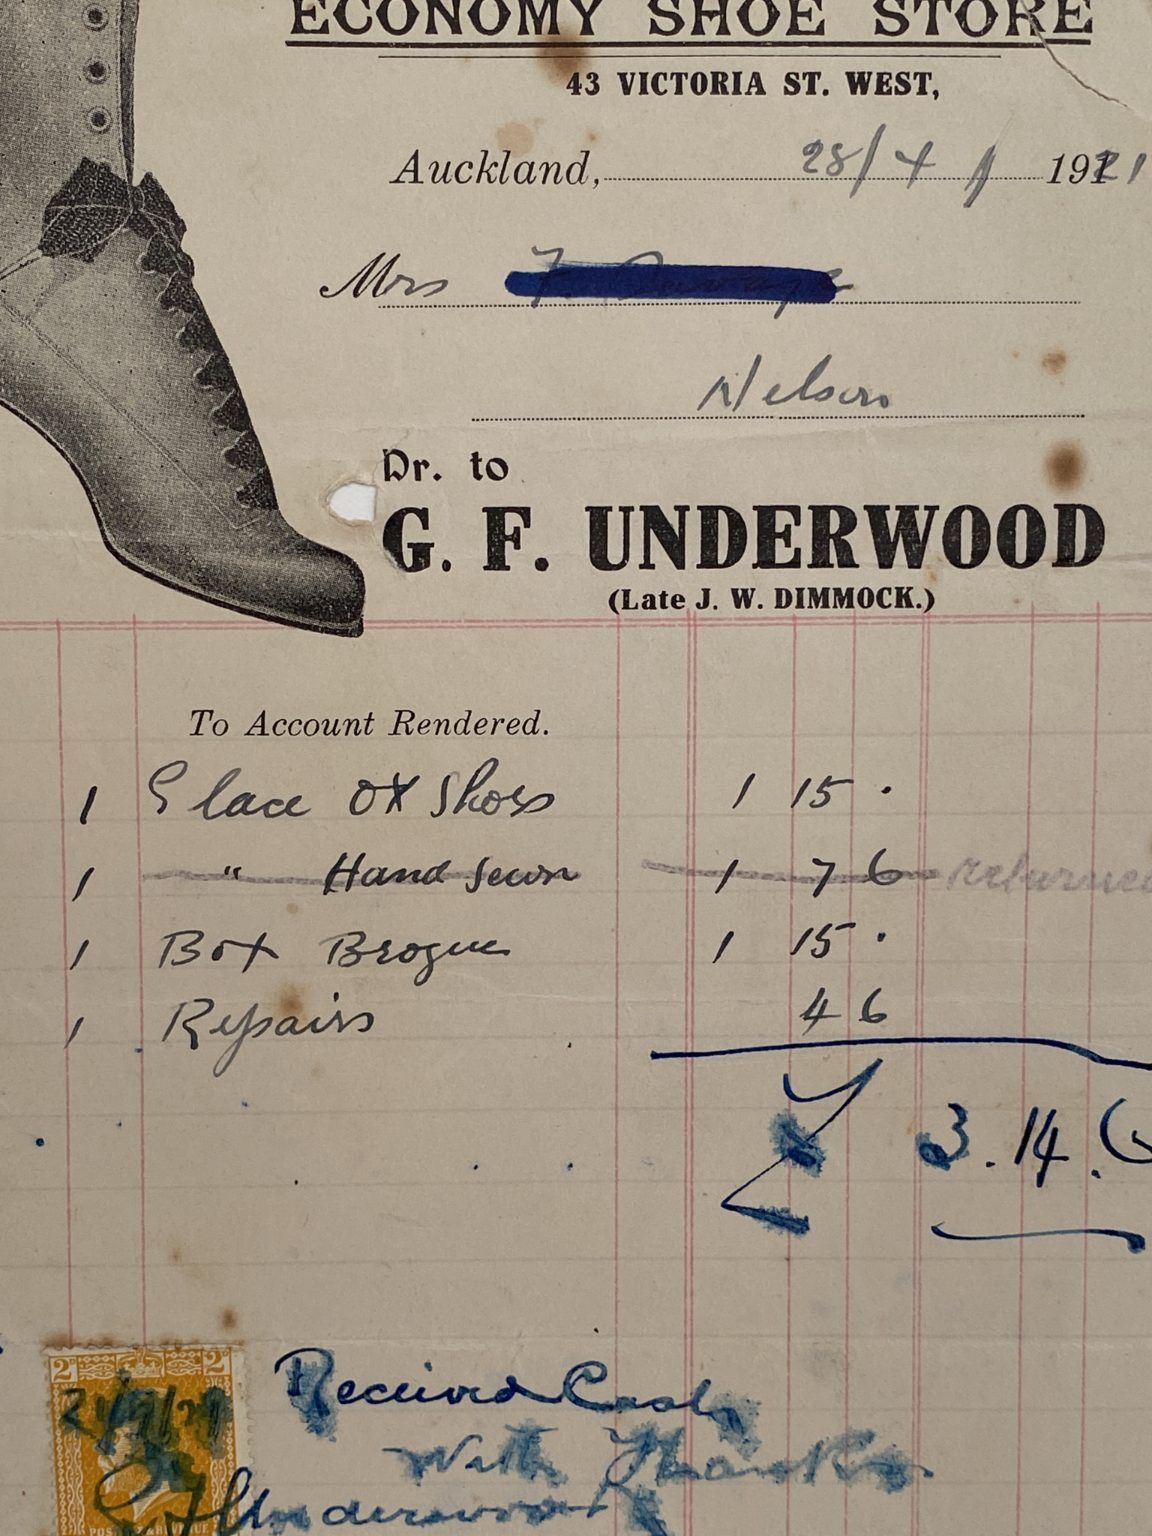 ECONOMY SHOE STORE
43 VICTORIA ST. WEST,
Auckland, 28/4/ 1921
Mrs
Nelson
Dr. to
G. F. UNDERWOOD
(Late J. W. DIMMOCK.)
To Account Rendered.
1 Glace OX Shoes 1 15 .
1 " Hand Sewn 1 7 6 returned
1 Box Brogue 1 15 .
1 Repairs 4 6
£ 3.14.6
2D 2D
Received Cash
With Thanks
Underwood
POSTAGE & REVENUE